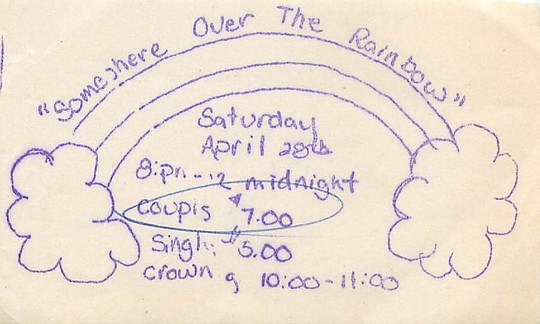 "Somewhere Over The Rainbow"
Saturday
April 28th
8:pm - 12 midnight
Coupls $7.00
Singl: $5.00
Crown g 10:00-11:00